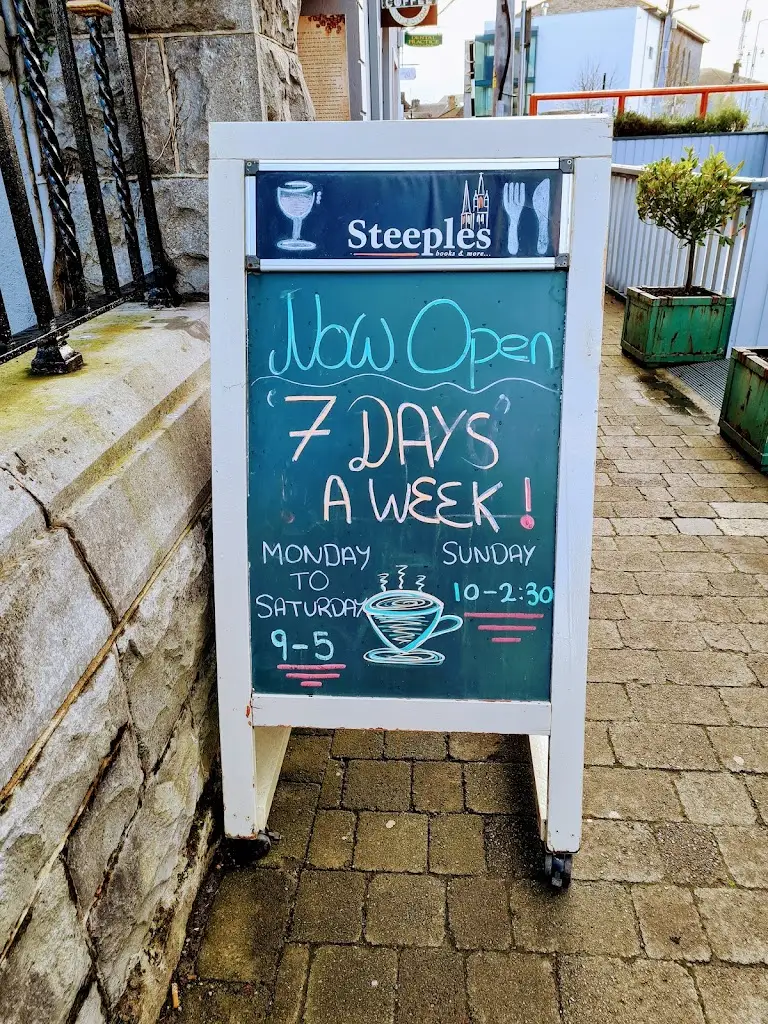 COFFEE
Steeples
books & more...
Now Open
"7 DAYS"
A WEEK!
MONDAY
TO
SATURDAY
9-5
SUNDAY
10-2:30